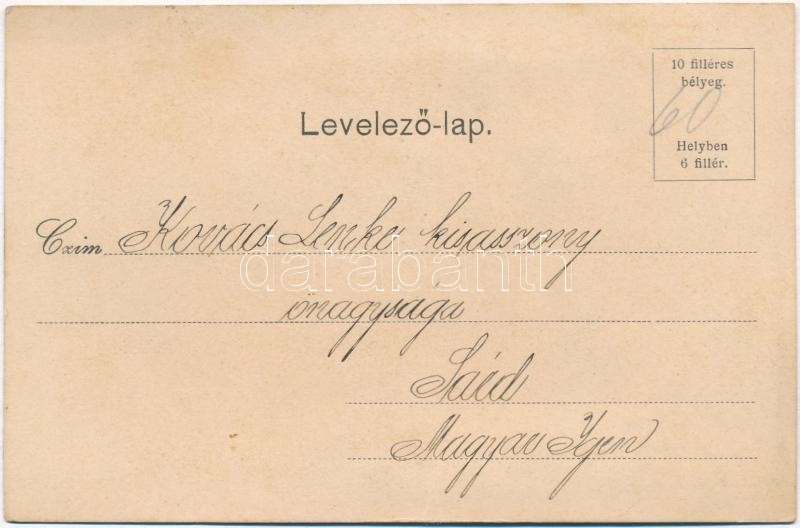 10 filléres
bélyeg.
60
Helyben
6 fillér.
Levelező-lap.
Czim Kovács Lenke kisasszony
darabanth
őnagysága
Magyar Igen